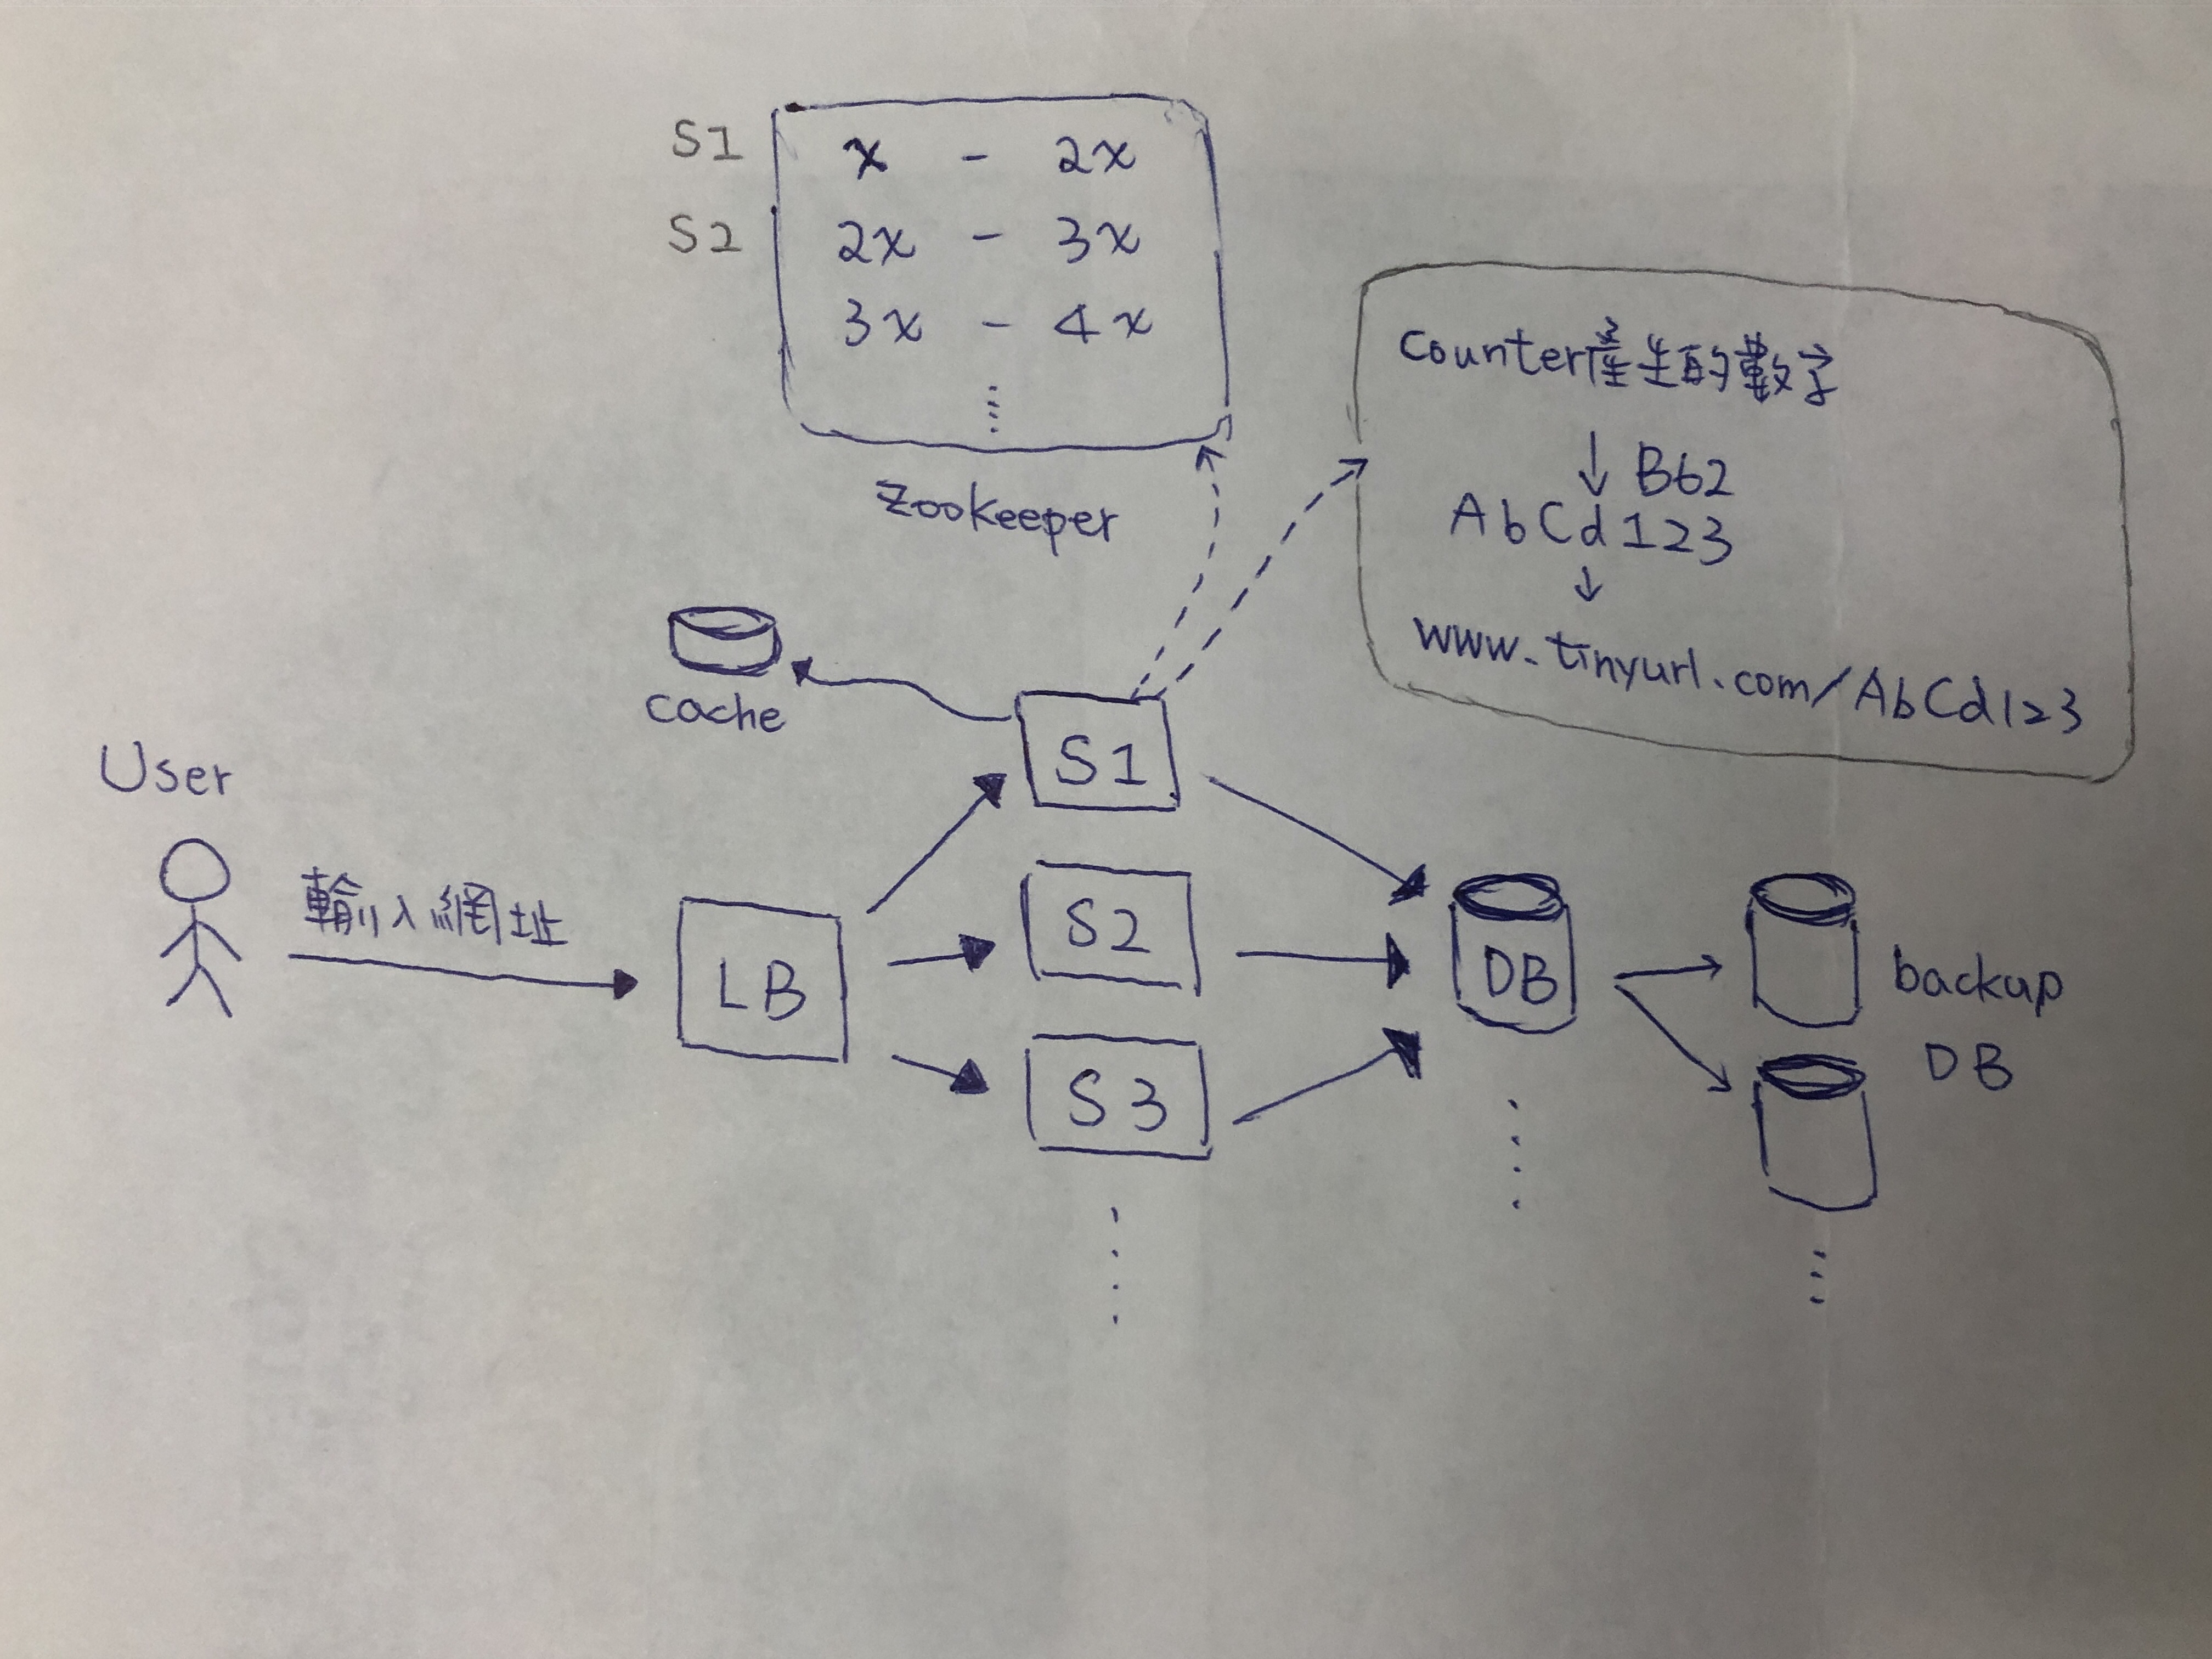 S1 x - 2x
S2 2x - 3x
3x - 4x
Zookeeper
Counter產生的數字
B62
AbCd123
www.tinyurl.com/AbCd123
cache
User
輸入網址
LB
S1
S2
S3
DB
backup
DB